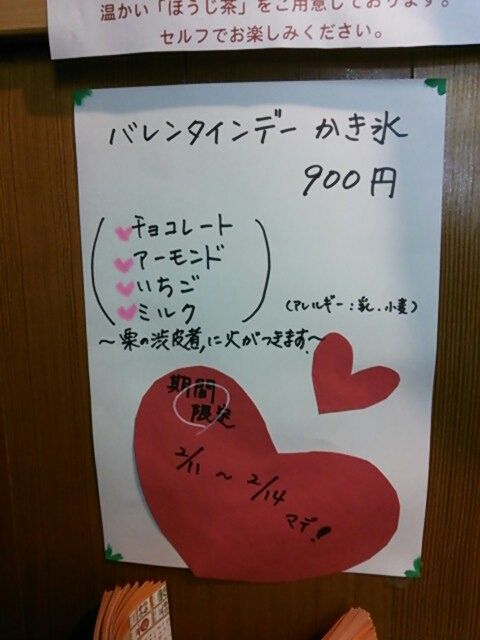 温かい「ほうじ茶」をご用意しております。
セルフでお楽しみください。
バレンタインデー かき氷
900円
チョコレート
アーモンド
いちご
ミルク
(アレルギー:乳、小麦)
〜栗の渋皮煮に火がつきます〜
期間
限定
2/11 〜 2/14
マデ!